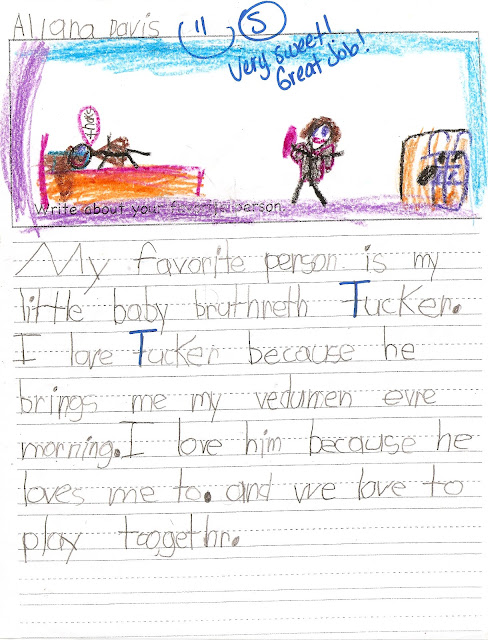 Aliana Davis
5
Very sweet!
Great Job!
Write about your favorite person.
My favorite person is my
little baby bruthreth Tucker.
I love Tucker because he
brings me my vedumen evre
morning. I love him because he
loves me to. and we love to
play toogethr.